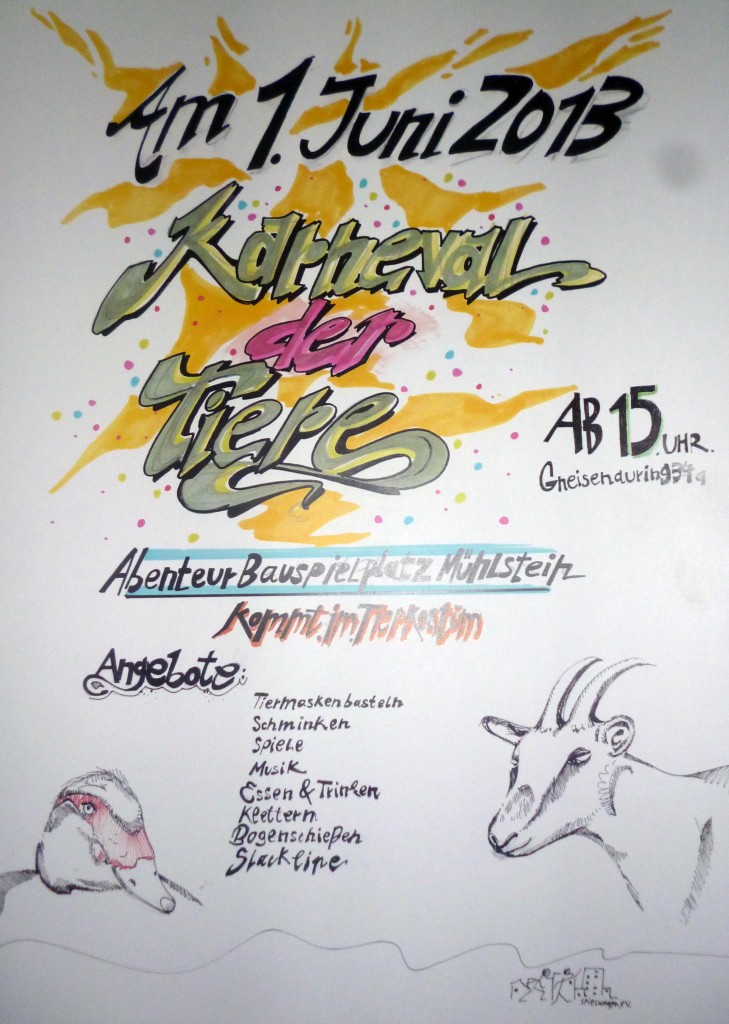 Am 1. Juni 2013
Karneval
der
Tiere
AB 15 UHR.
Gneisenauring 34a
Abenteur Bauspielplatz Mühlstein
kommt im Tierkostüm
Angebote:
Tiermaskenbasteln
Schminken
Spiele
Musik
Essen & Trinken
Klettern
Bogenschießen
Slackline